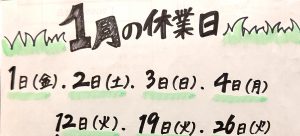 1月の休業日
1日(金).2日(土).3日(日).4日(月)
12日(火).19日(火).26日(火)